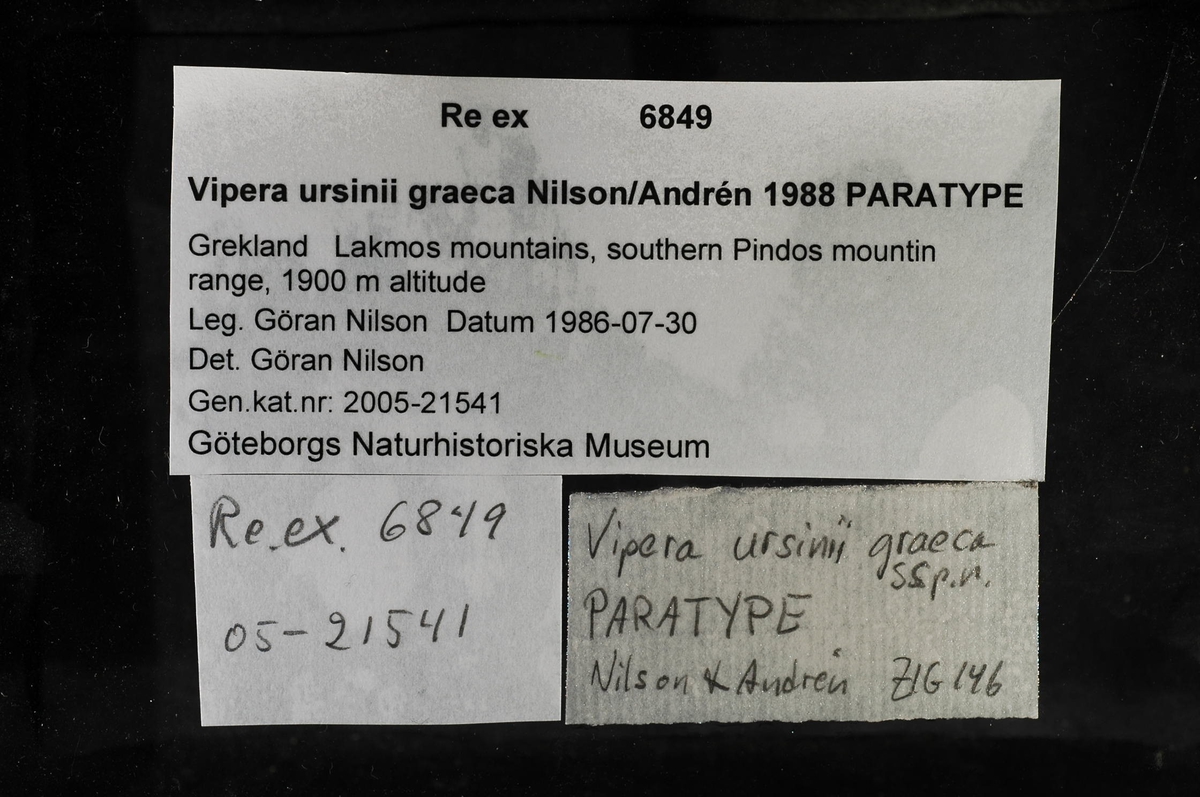 Re ex 6849
Vipera ursinii graeca Nilson/Andrén 1988 PARATYPE
Grekland Lakmos mountains, southern Pindos mountin
range, 1900 m altitude
Leg. Göran Nilson Datum 1986-07-30
Det. Göran Nilson
Gen.kat.nr: 2005-21541
Göteborgs Naturhistoriska Museum
Re.ex. 6849
05-21541
Vipera ursinii graeca
SSp.n.
PARATYPE
Nilson & Andrén ZIG 146